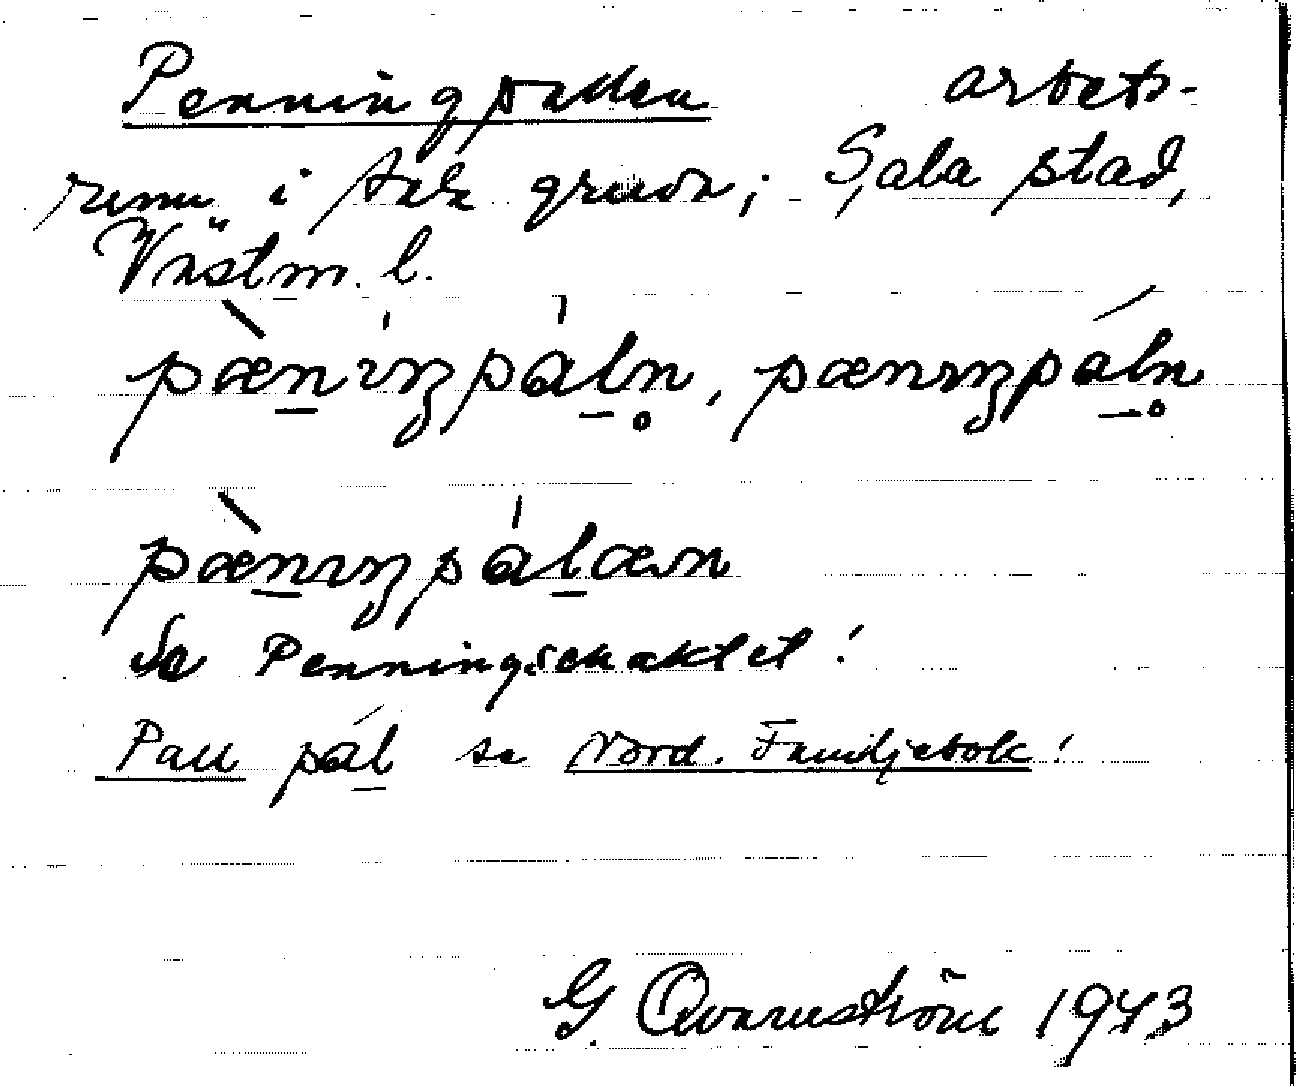 Penningpallen arbets-
rum i Sala gruva; Sala stad,
Västm. l.
pæ̀nıŋpál̥n, pænıŋpáln̥
pæ̀nıŋpálæn
Se Penningschaktet!
Pall pál se Nord. Familjebok!
G. Qvarnström 1943